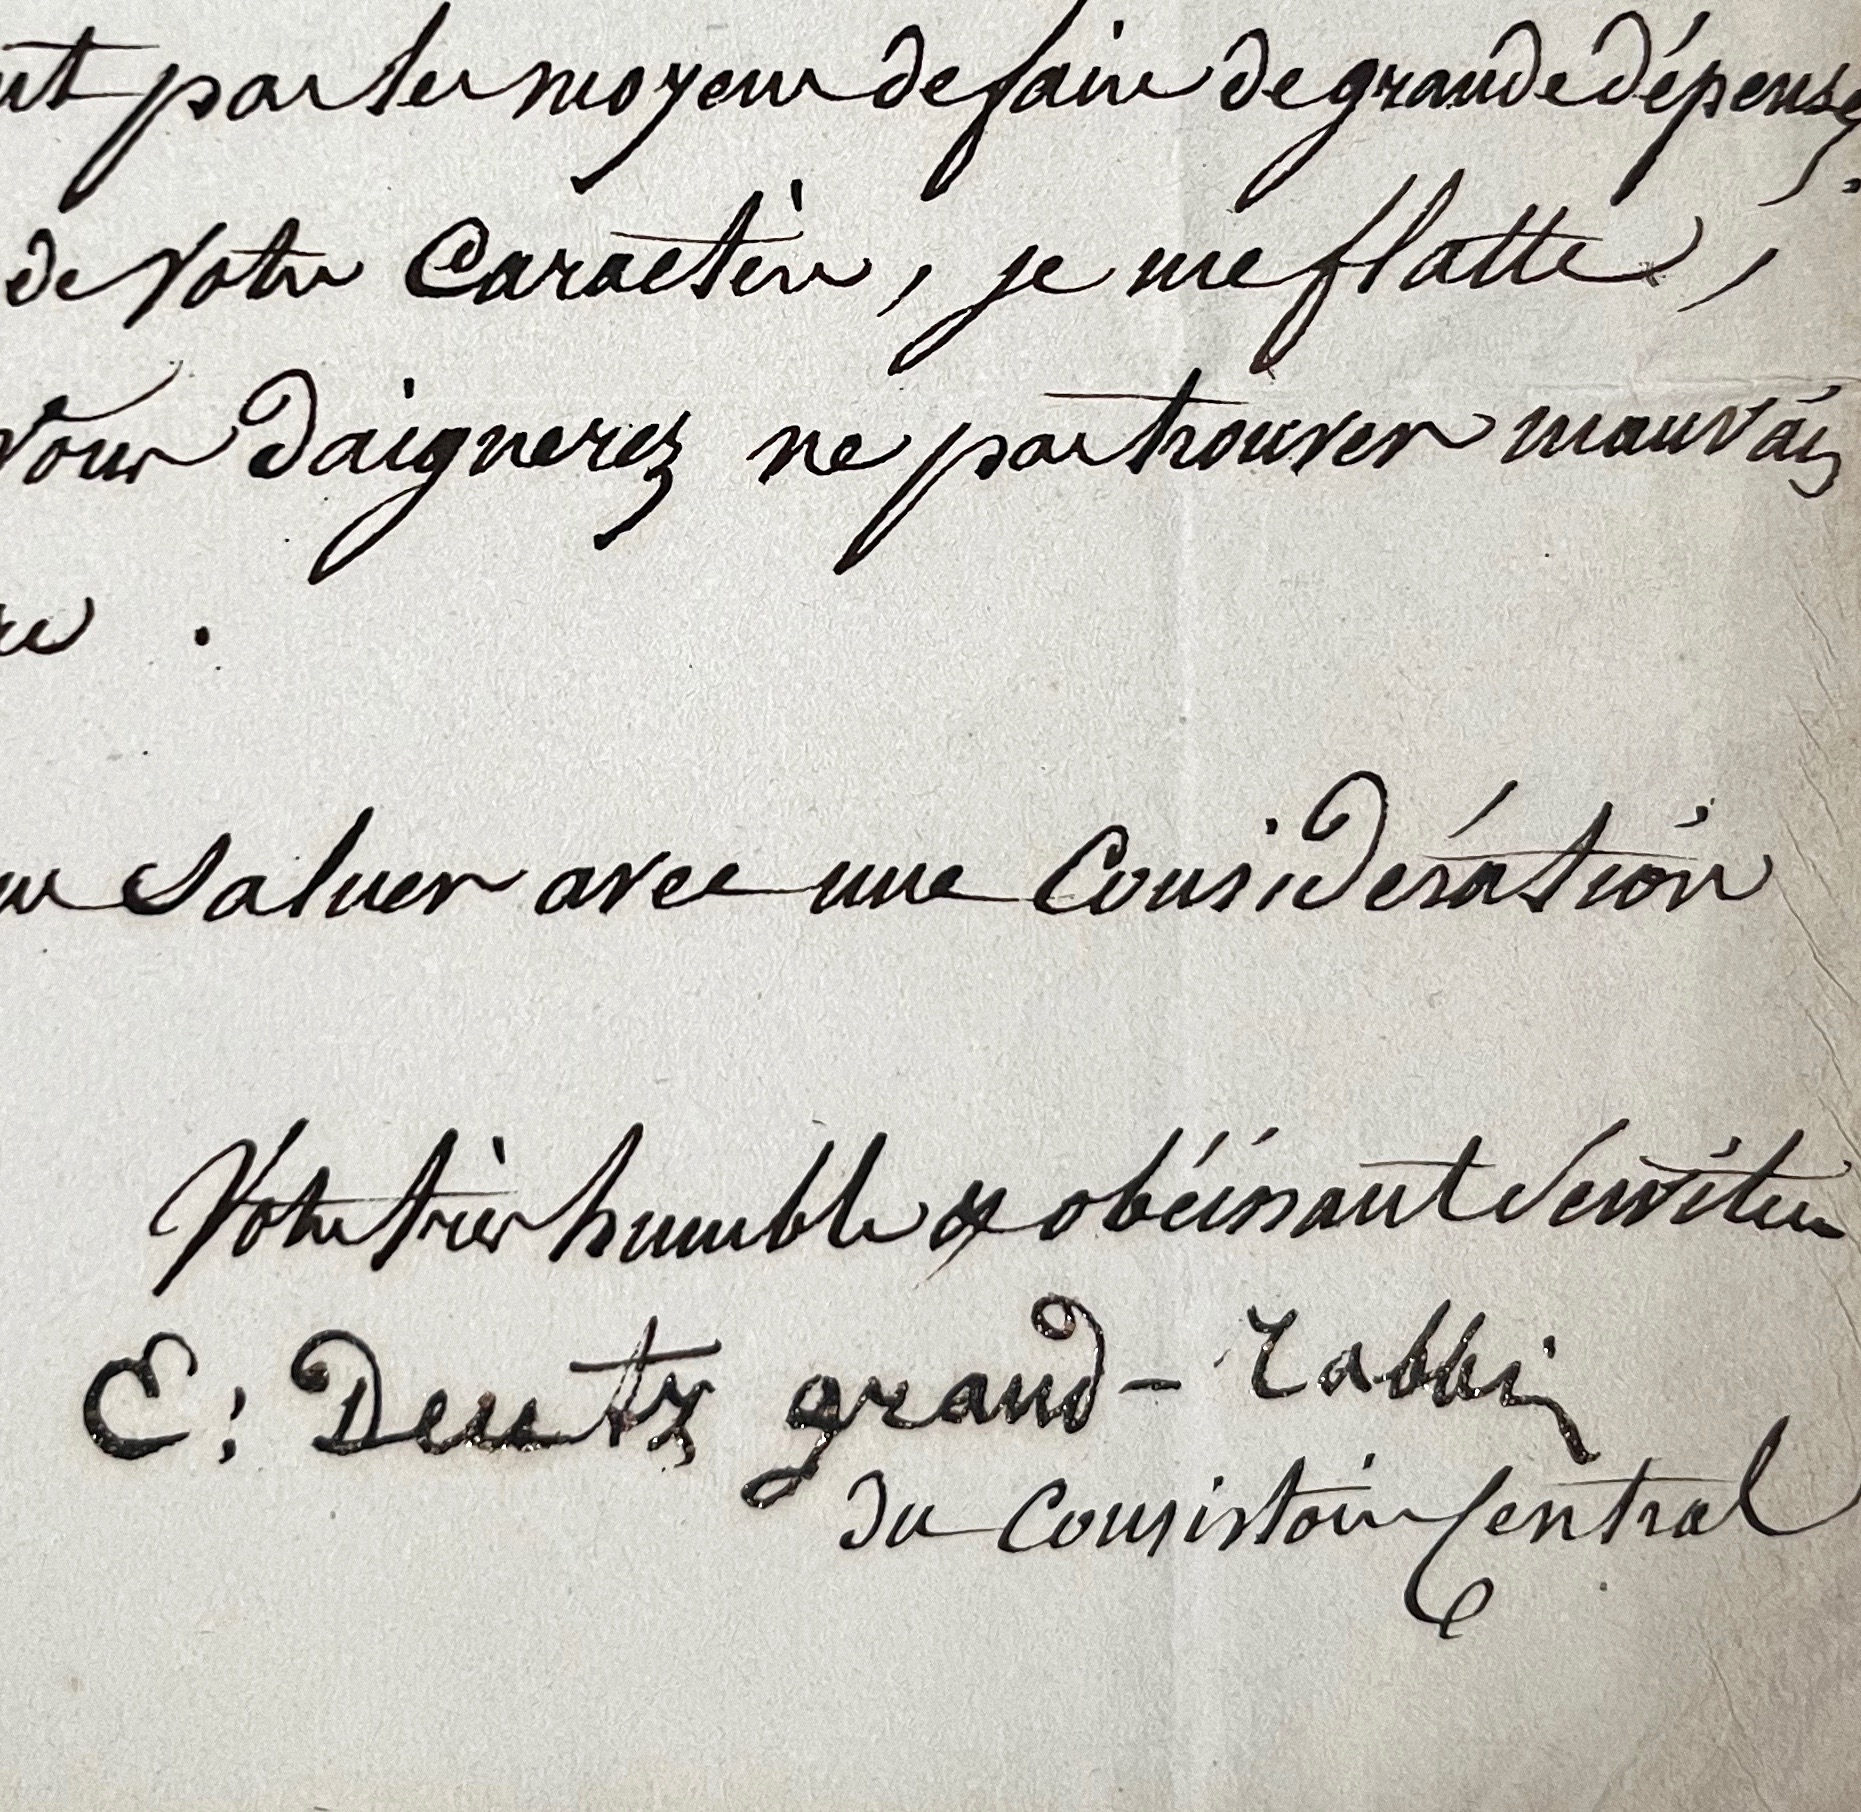 pas les moyens de faire de grande dépenses.
de Votre Caractère, je me flatte,
Vous daignerez ne pas trouver mauvais
.
saluer avec une Considération
Votre très humble & obéissant Serviteur
E: Deutz grand-rabbin
du Consistoire Central